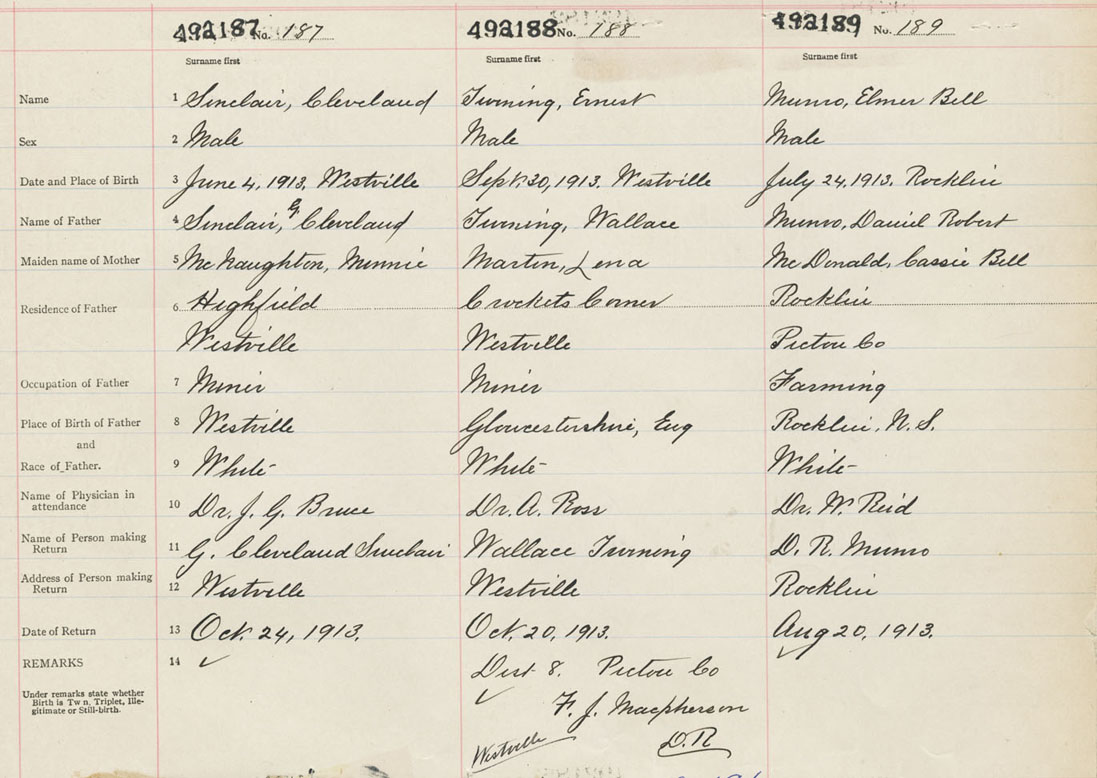 492187 No. 187 492188 No. 188 492189 No. 189
Surname first Surname first Surname first
Name 1 Sinclair, Cleveland Twining, Ernest Munro, Elmer Bell
Sex 2 Male Male Male
Date and Place of Birth 3 June 4, 1913. Westville Sept. 30, 1913. Westville July 24, 1913. Rocklin
Name of Father 4 Sinclair, G Cleveland Twining, Wallace Munro, Daniel Robert
Maiden name of Mother 5 McNaughton, Minnie Martin, Lena McDonald, Cassie Bell
Residence of Father 6 Highfield Crockets Corner Rocklin
Westville Westville Pictou Co
Occupation of Father 7 Miner Miner Farming
Place of Birth of Father 8 Westville Gloucestershire, Eng Rocklin, N.S.
and
Race of Father. 9 White White White
Name of Physician in
attendance 10 Dr. J. G. Bruce Dr. A. Ross Dr. W. Reid
Name of Person making
Return 11 G. Cleveland Sinclair Wallace Twining D. R. Munro
Address of Person making
Return 12 Westville Westville Rocklin
Date of Return 13 Oct. 24, 1913. Oct. 20, 1913. Aug 20, 1913.
REMARKS 14 Dist 8. Pictou Co
Under remarks state whether
Birth is Tw n, Triplet, Ille-
gitimate or Still-birth.
F. J. Macpherson
Westville D.R